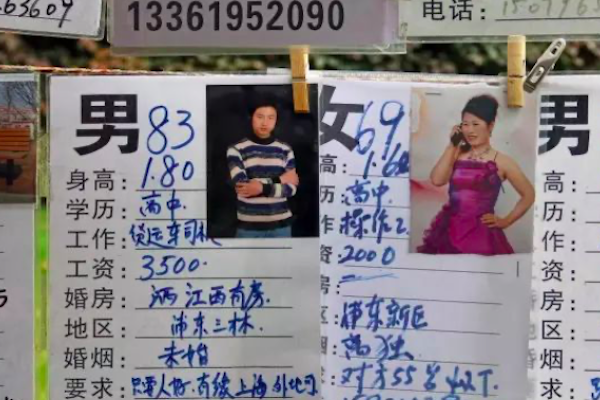 13361952090
电话：
男 83
身高：1.80
学历：高中
工作：货运车司机
工资：3500.
婚房：江西有房.
地区：浦东三林.
婚烟：未婚
要求：只要人好.
女 69
高：1.6
历：高中
作：操作工
资：2000
房：
区：浦东新区
烟：离独
求：对方55岁以下.
男
身高：
学历：
工作：
工资：
婚房：
地区：
婚烟：
要求：